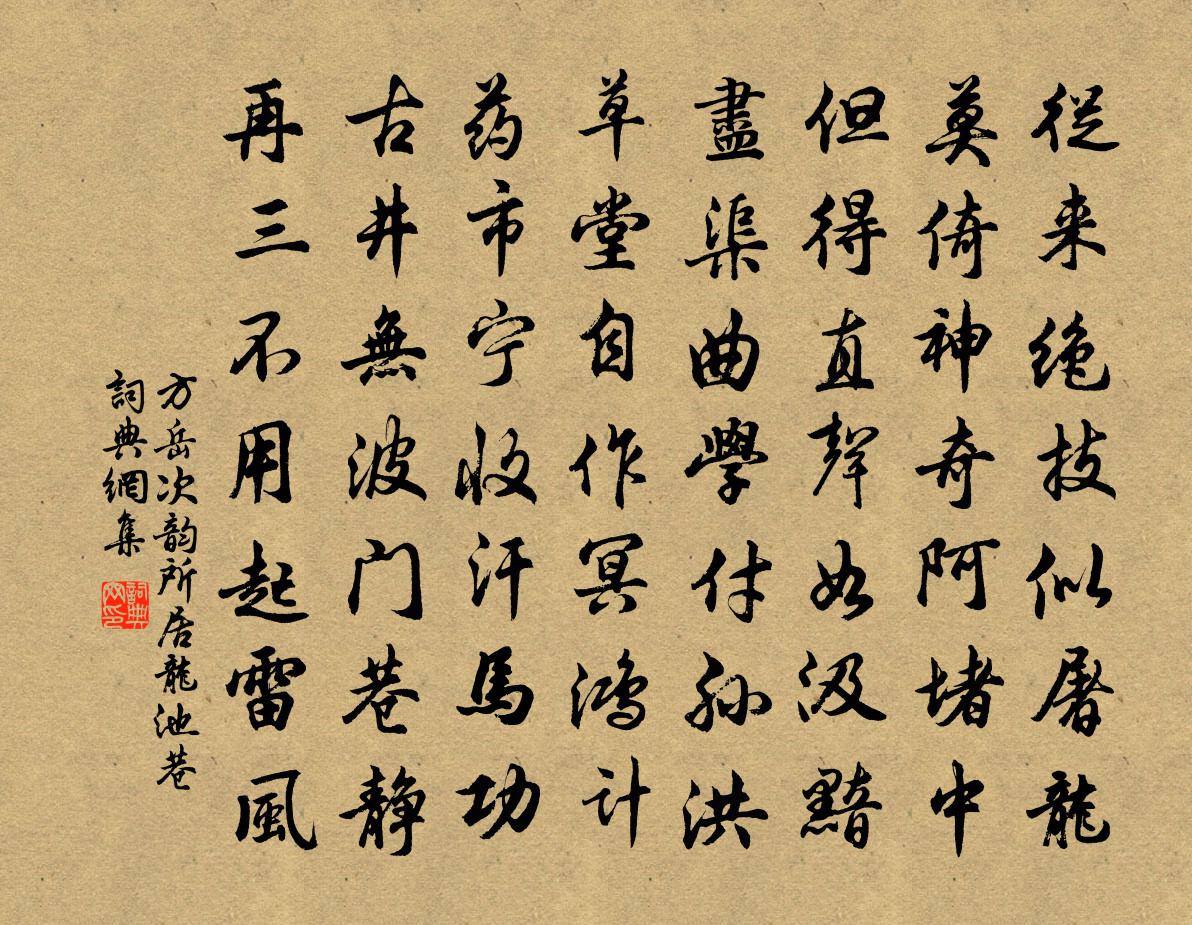 従来绝技似屠龍
莫倚神奇阿堵中
但得直聲如汲黯
盡渠曲學付孙洪
草堂自作冥鸿计
药市宁收汗馬功
古井無波门巷静
再三不用起雷風
方岳次韵所居龍池巷
詞典網集
詞典网印